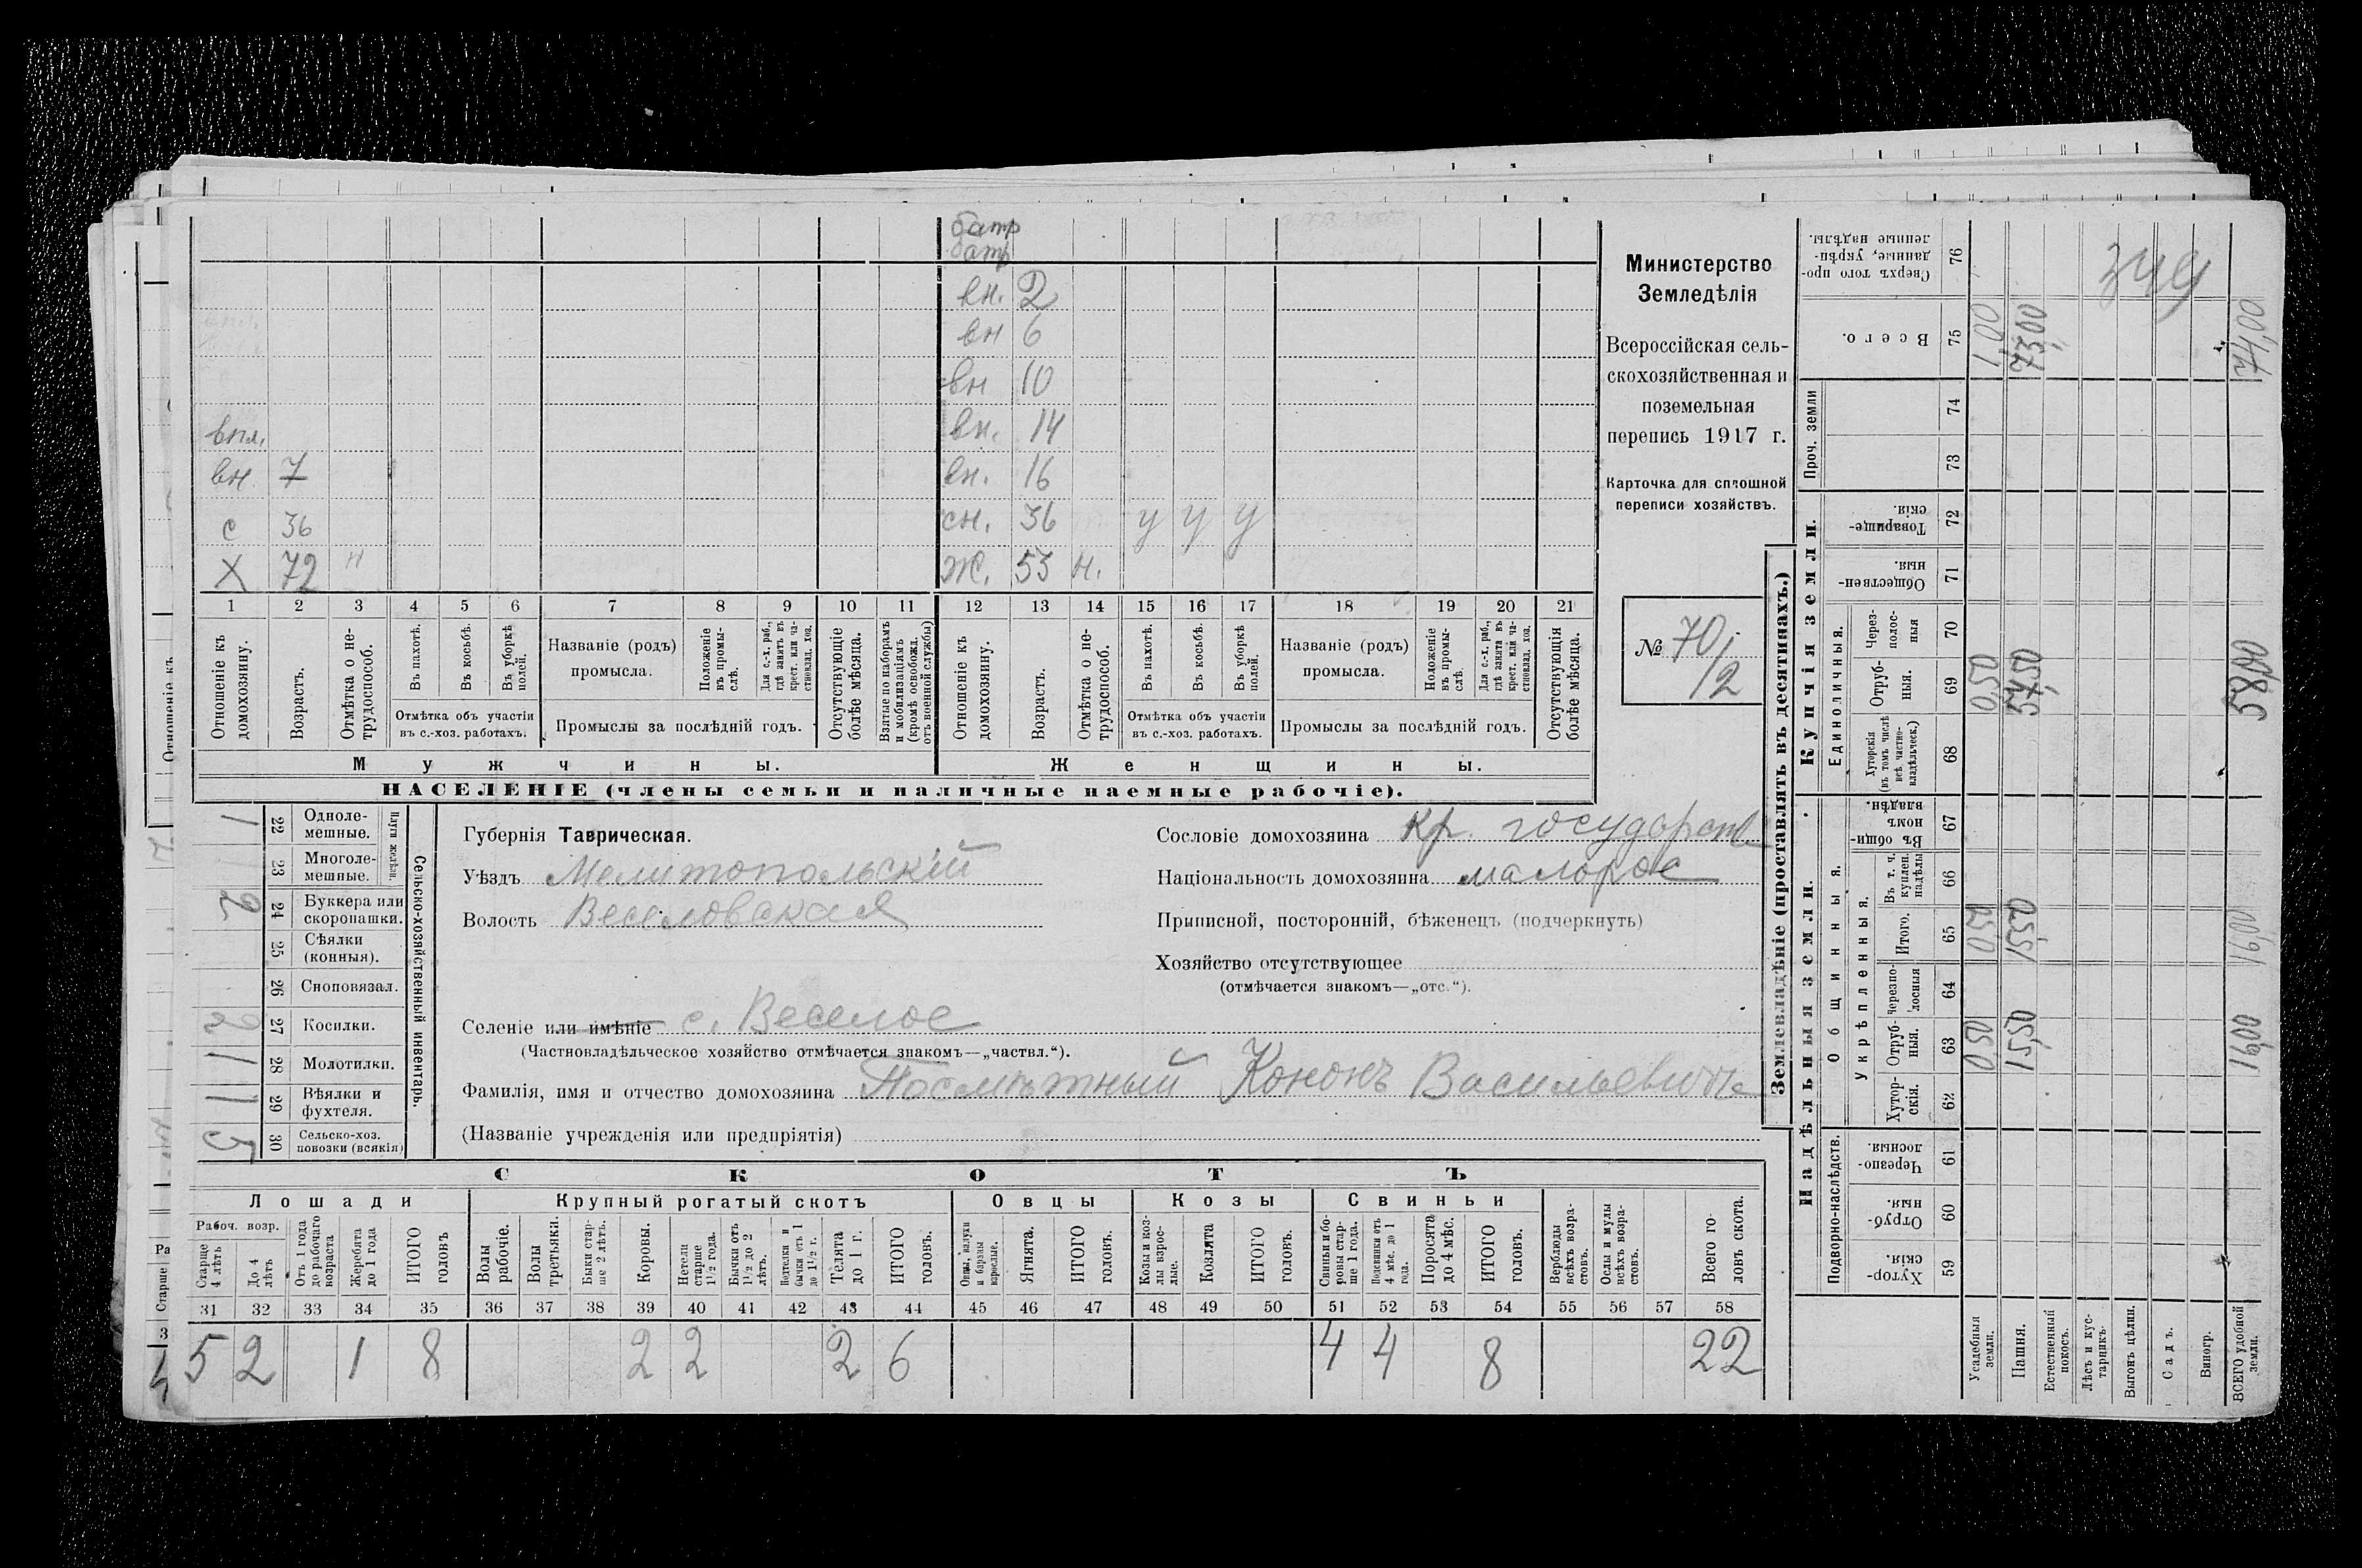 батр
батр
вн. 2
вн 6
вн 10
впл. вн. 14
вн. 7 вн. 16
с 36 сн. 36 у у у
Х 72 н Ж. 53 н.
1 2 3 4 5 6 7 8 9 10 11 12 13 14 15 16 17 18 19 20 21
Отношеніе къ домохозяину.
Возрастъ.
Отмѣтка о не-трудоспособ.
Въ пахотѣ.
Въ косьбѣ.
Въ уборкѣ полей.
Отмѣтка объ участіи
въ с.-хоз. работахъ.
Названіе (родъ)
промысла.
Положеніе въ промы-слѣ.
Для с.-х. раб., гдѣ занятъ въ крест. или ча-стновлад. хоз.
Промыслы за послѣдній годъ.
Отсутствующіе болѣе мѣсяца.
Взятые по наборамъ и мобилизаціямъ (кромѣ освобожд. отъ военной службы)
Отношеніе къ домохозяину.
Возрастъ.
Отмѣтка о не-трудоспособ.
Въ пахотѣ.
Въ косьбѣ.
Въ уборкѣ полей.
Отмѣтка объ участіи
въ с.-хоз. работахъ.
Названіе (родъ)
промысла.
Положеніе въ промы-слѣ.
Для с.-х. раб., гдѣ занята въ крест. или ча-стновлад. хоз.
Промыслы за послѣдній годъ.
Отсутствующія болѣе мѣсяца.
Мужчины.
Женщины.
НАСЕЛЕНІЕ (члены семьи и наличные наемные рабочіе).
Министерство
Земледѣлія
Всероссійская сель-
скохозяйственная и
поземельная
перепись 1917 г.
Карточка для сплошной
переписи хозяйствъ.
№ 70/
12
1 22 Одноле-мешные.
1 23 Многоле-мешные.
Плуги желѣзн.
2 24 Буккера или скоропашки.
25 Сѣялки (конныя).
26 Сноповязал.
2 27 Косилки.
1 28 Молотилки.
1 29 Вѣялки и фухтеля.
5 30 Сельско-хоз. повозки (всякія)
Сельско-хозяйственный инвентарь.
Губернія Таврическая.
Уѣздъ Мелитопольскій
Волость Веселовская
Селеніе или имѣніе с. Веселое
(Частновладѣльческое хозяйство отмѣчается знакомъ—„частвл.“).
Фамилія, имя и отчество домохозяина Посмѣтный Кононъ Васильевичъ
(Названіе учрежденія или предпріятія)
Сословіе домохозяина кр. государств
Національность домохозяина малорос
Приписной, посторонній, бѣженецъ (подчеркнуть)
Хозяйство отсутствующее
(отмѣчается знакомъ—„отс.“).
СКОТЪ
Лошади
Крупный рогатый скотъ
Овцы
Козы
Свиньи
Рабоч. возр.
Старше 4 лѣтъ
До 4 лѣтъ
Отъ 1 года до рабочаго возраста
Жеребята до 1 года
ИТОГО головъ
Волы рабочіе.
Волы третьяки.
Быки стар-ше 2 лѣтъ.
Коровы.
Нетели старше 1½ года.
Бычки отъ 1½ до 2 лѣтъ.
Подтелки и бычки отъ 1 до 1½ г.
Телята до 1 г.
ИТОГО головъ.
Овцы, валухи и бараны взрослые.
Ягнята.
ИТОГО головъ.
Козы и коз-лы взрос-лые.
Козлята
ИТОГО головъ.
Свиньи и бо-ровы стар-ше 1 года.
Подсвинки отъ 4 мѣс. до 1 года.
Поросята до 4 мѣс.
ИТОГО головъ.
Верблюды всѣхъ возра-стовъ.
Ослы и мулы всѣхъ возра-стовъ.
Всего го-ловъ скота.
31 32 33 34 35 36 37 38 39 40 41 42 43 44 45 46 47 48 49 50 51 52 53 54 55 56 57 58
5 2 1 8 2 2 2 6 4 4 8 22
Землевладѣніе (проставлять въ десятинахъ.)
Надѣльныя земли.
Купчія земли.
Проч. земли
Подворно-наслѣдств.
Общинныя.
Укрѣпленныя.
Единоличныя.
Хутор-скія. 59
Отруб-ныя. 60
Черезпо-лосныя. 61
Хутор-скія. 62
Отруб-ныя. 63
Черезпо-лосныя 64
Итого. 65
Въ т. ч. куплен. надѣлы 66
Въ общи-номъ владѣн. 67
Хуторскія (въ томъ числѣ всѣ частно-владѣльческ.) 68
Отруб-ныя. 69
Через-полос-ныя 70
Обществен-ныя. 71
Товарище-скія. 72
73
74
Всего. 75
Сверхъ того про-данные, укрѣп-ленные надѣлы. 76
Усадебныя земли. 050 050 050 1,00
Пашня. 1550 1550 5750 7300
Естественный покосъ.
Лѣсъ и кус-тарникъ.
Выгонъ цѣлин.
Садъ.
Виногр.
ВСЕГО удобной земли. 1600 1600 5800 74,00
349